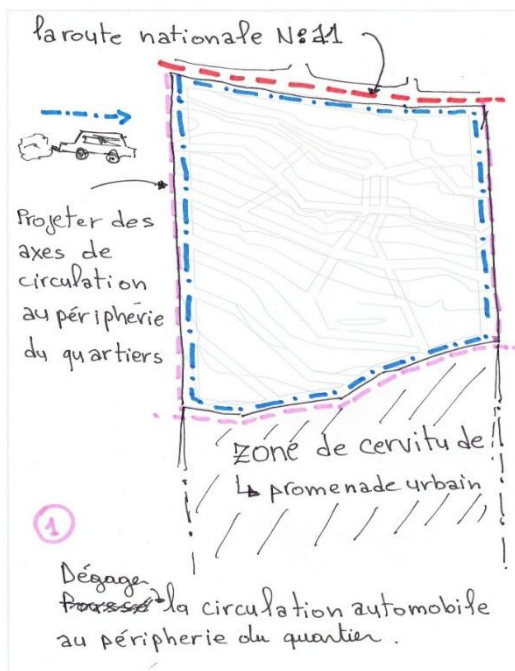 la route nationale N:11
Projeter des
axes de
circulation
au périphérie
du quartiers
zone de cervitude
↳ promenade urbain
1
Dégage
la circulation automobile
au péripherie du quartier.